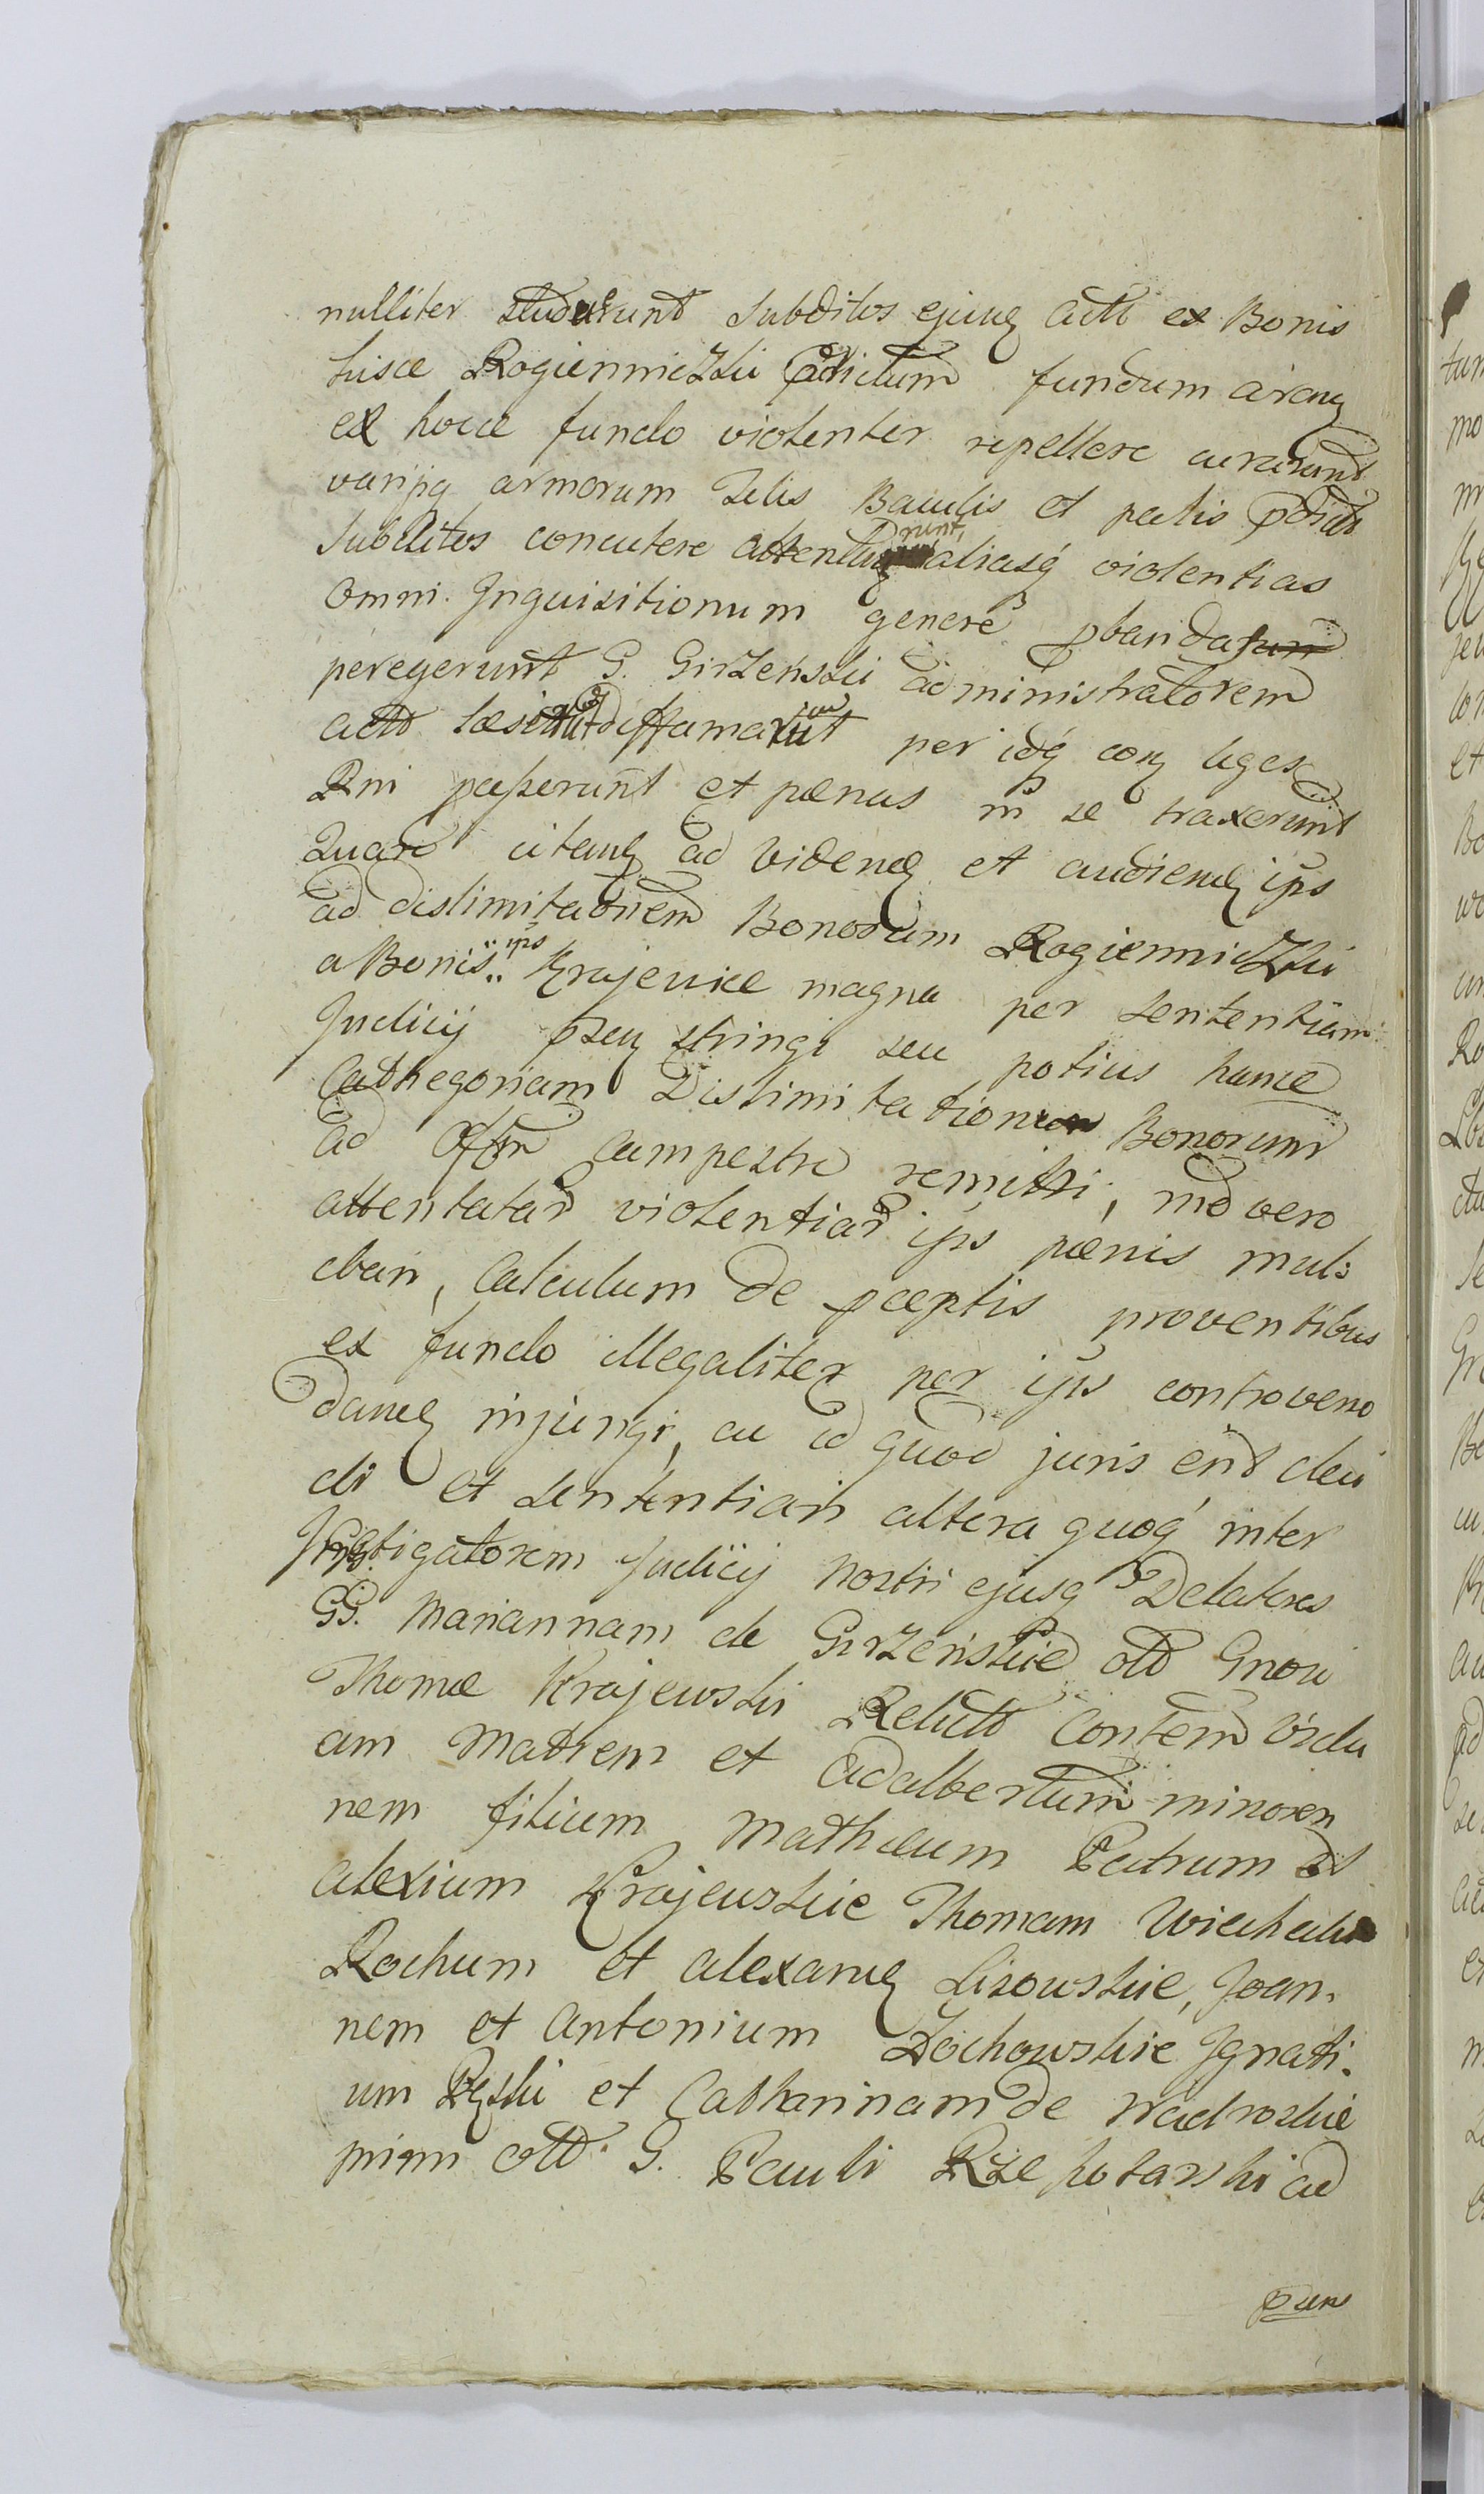 nulliter studuerunt Subditos ejusq actti ex Bonis
hisce Rogienniczki pdictum fundum aranq
ex hocce fundo violenter repellere curarunt
varijsq armorum Telis Baculis et palis pdictos
Subditos concutere attentarunt, aliasq́ violentias
omni Inquisitionum genere pbandas
peregerunt G. Girzenski administratorem
actto læserut et diffamarut per idq́ conq leges
Rni passerunt et pœnas in se traxerunt
Quare citanq ad videnq et audienq ijs
ad dislimitatnem Bonorum Rogienniczki
a Bonis ips Krajewice magna per sententiam
Judicij pseq stringi seu potius hance
Cathegoriam Dislimitationum Bonorum
ad Offm Campestre remitti, mo vero
attentatar violentiar ijs pœnis mul:
ctari, Calculum de pceptis proventibus
ex fundo illegaliter per ijs controverso
danq injungi, ac id quod juris erit deci
di et sententiari altera quoq́ inter
Instigatorem Judicij nostri ejusq Delatores
GG. Mariannam de Girzenskie olt Gnosi
Thomæ Krajewski Relictt Contem vidu
am Matrem et Adalbertum minoren
nem filium Mathæum Patrum et
Alexium Krajewskie Thomam
Rochum et Alexanq Lisowskie, Joan.
nem et Antonium Zochowskie Ignati.
um Ryski et Catharinam de Nadroskie
primi ott. G. Pauli Rzeszotarski ad
psens